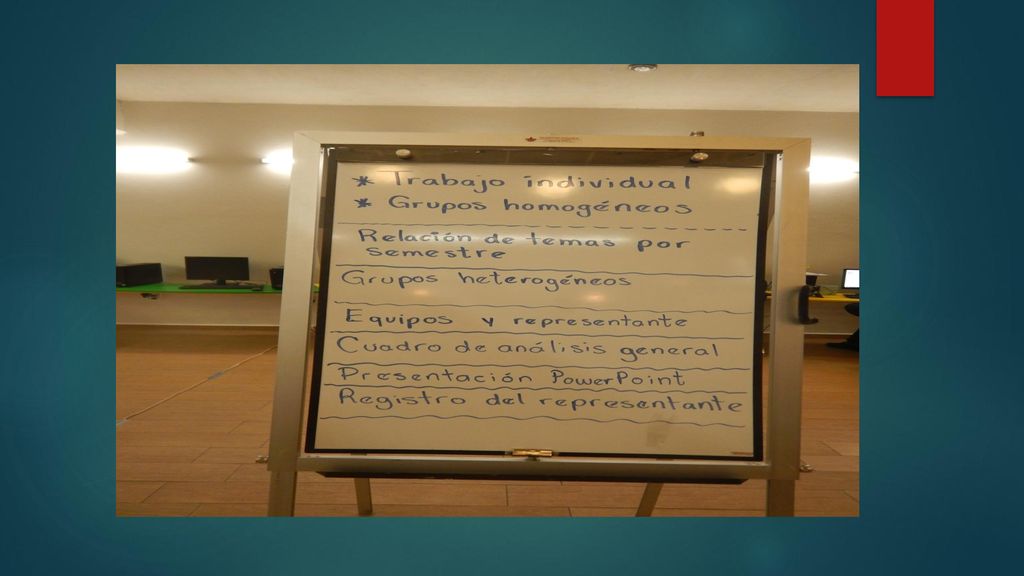 * Trabajo individual
* Grupos homogéneos
Relación de temas por
semestre
Grupos heterogéneos
Equipos y representante
Cuadro de análisis general
Presentación PowerPoint
Registro del representante